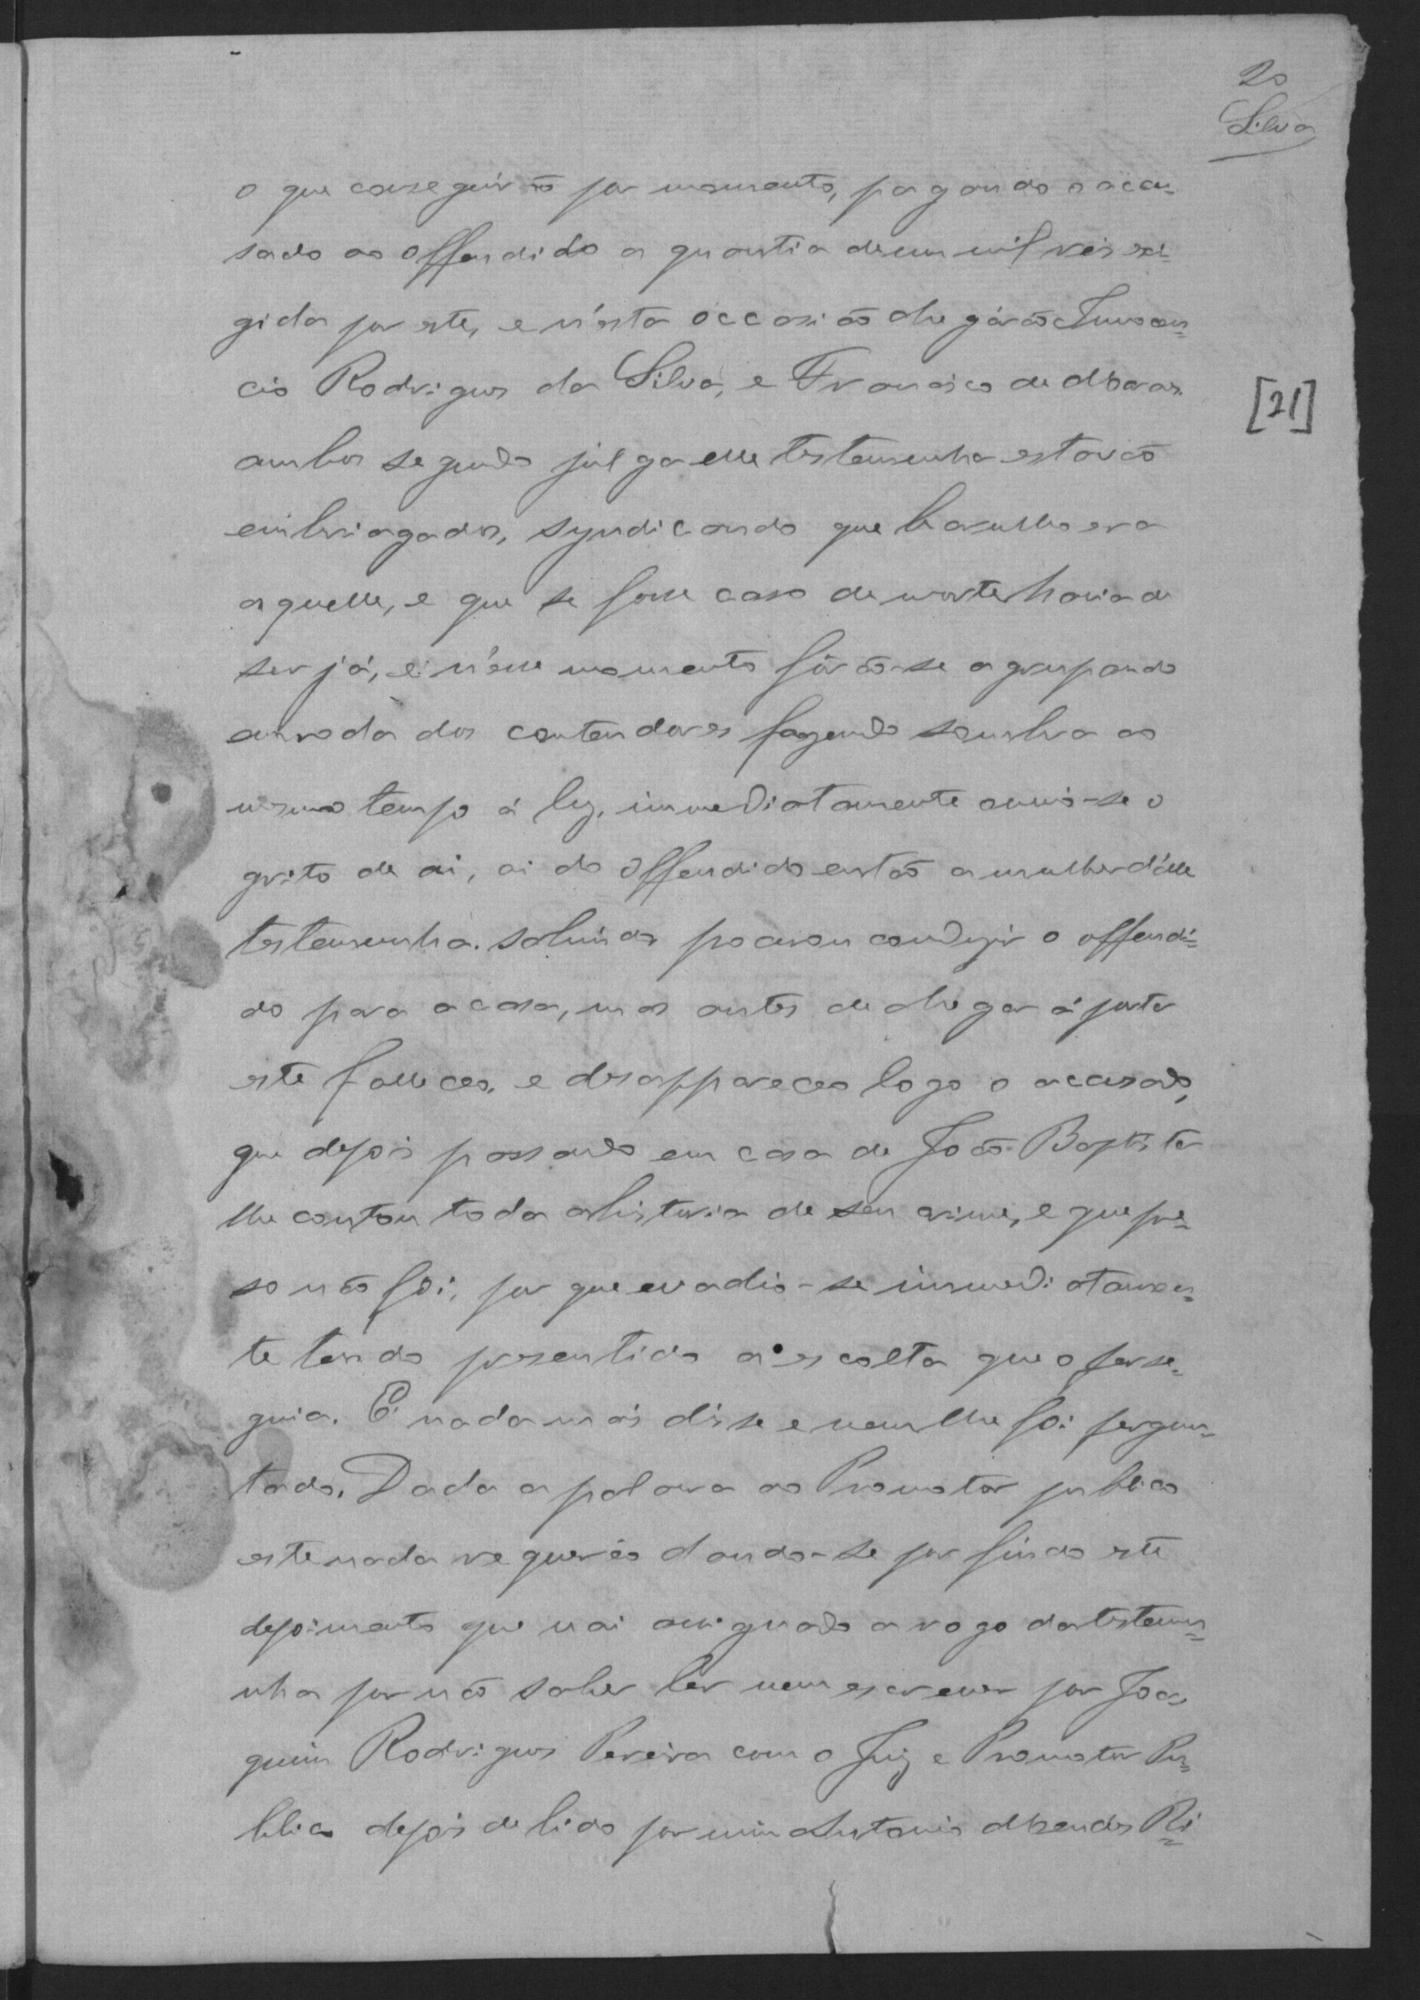 20
Silva
o que conseguirão por momento, pagando o accu-
sado ao offendido a quantia de um mil reis exi-
gida por este, e n'esta occasião chegárão Innocen-
cio Rodrigues da Silva, e Francisco de Moraes
[21]
ambos segundo julga elle testemunha estavão
embriagados, syndicando que barulho era
aquelle, e que se fosse caso de morte havia de
ser já, e n'esse momento fôrão-se agrupando
en roda dos contendores fazendo sombra ao
mesmo tempo á luz, immediatamente ouvio-se o
grito de ai, ai do offendido então a mulher d'elle
testemunha sahindo procurou conduzir o offendi-
do para a casa, mas antes de chegar á porta
este falleceo, e desappareceo logo o accusado,
que depois passando em casa de João Baptista
lhe contou toda a historia de seu crime, e que pre-
so não foi, por que evadio-se immediatamen-
te tendo presentido a escolta que o perse-
guia. E nada mais disse e nem lhe foi pergun-
tado. Dada a palavra ao Promotor publico
este nada requerêo dando-se por findo este
depoimento que vai assignado a rogo da testemu-
nha por não saber lêr nem escrever por Joa-
quim Rodrigues Pereira com o Juiz e Promotor Pu-
blico depois de lido por mim Antonio Mendes Ri-